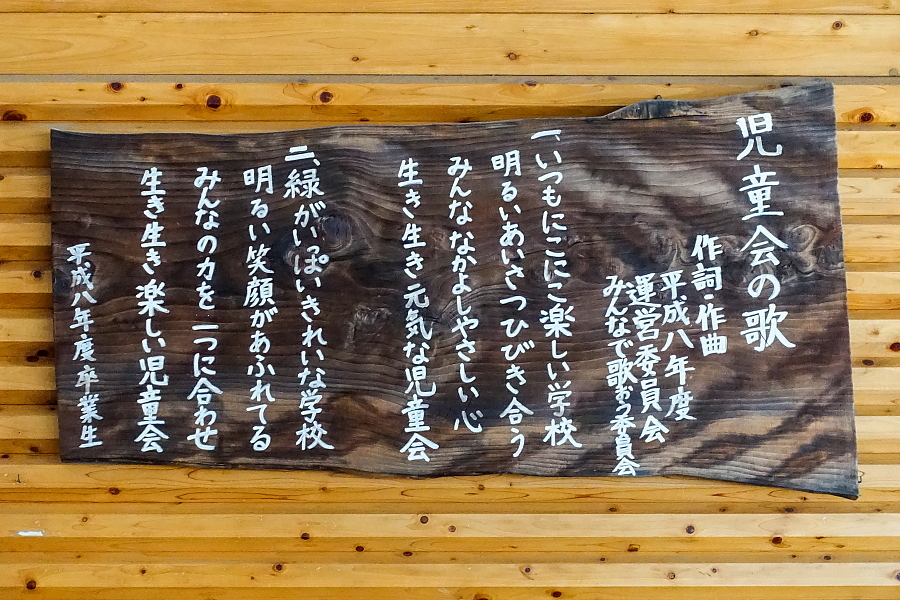 児童会の歌
作詞・作曲
平成八年度
運営委員会
みんなで歌おう委員会
一、いつもにこにこ楽しい学校
明るいあいさつひびき合う
みんななかよしやさしい心
生き生き元気な児童会
二、緑がいっぱいきれいな学校
明るい笑顔があふれてる
みんなの力を一つに合わせ
生き生き楽しい児童会
平成八年度卒業生